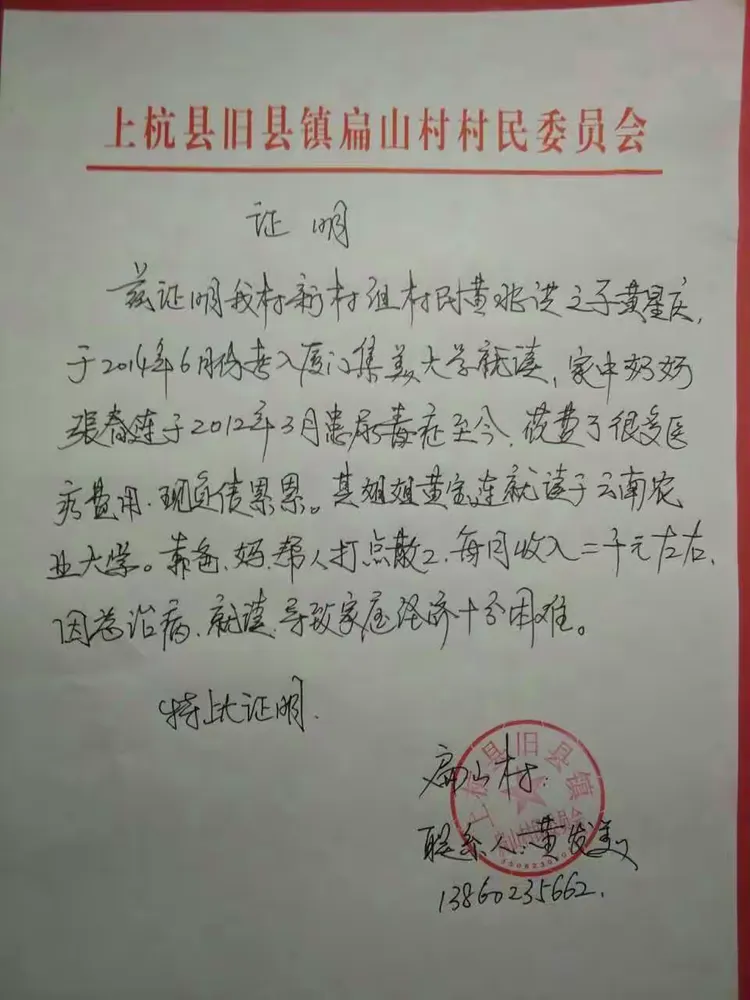 上杭县旧县镇扁山村村民委员会
证明
兹证明我村新村组村民黄洪之子黄星庆,
于2014年6月份考入厦门集美大学就读,家中妈妈
张春莲于2012年3月患尿毒症至今,花费了很多医
疗费用.现负债累累。其姐姐黄宝连就读于云南农
业大学。靠爸、妈、帮人打点散工,每月收入二千元左右,
因为治病、就读、导致家庭经济十分困难。
特此证明.
扁山村.
联系人:黄发美
13860235662.
上杭县旧县镇
扁山村村民委员会